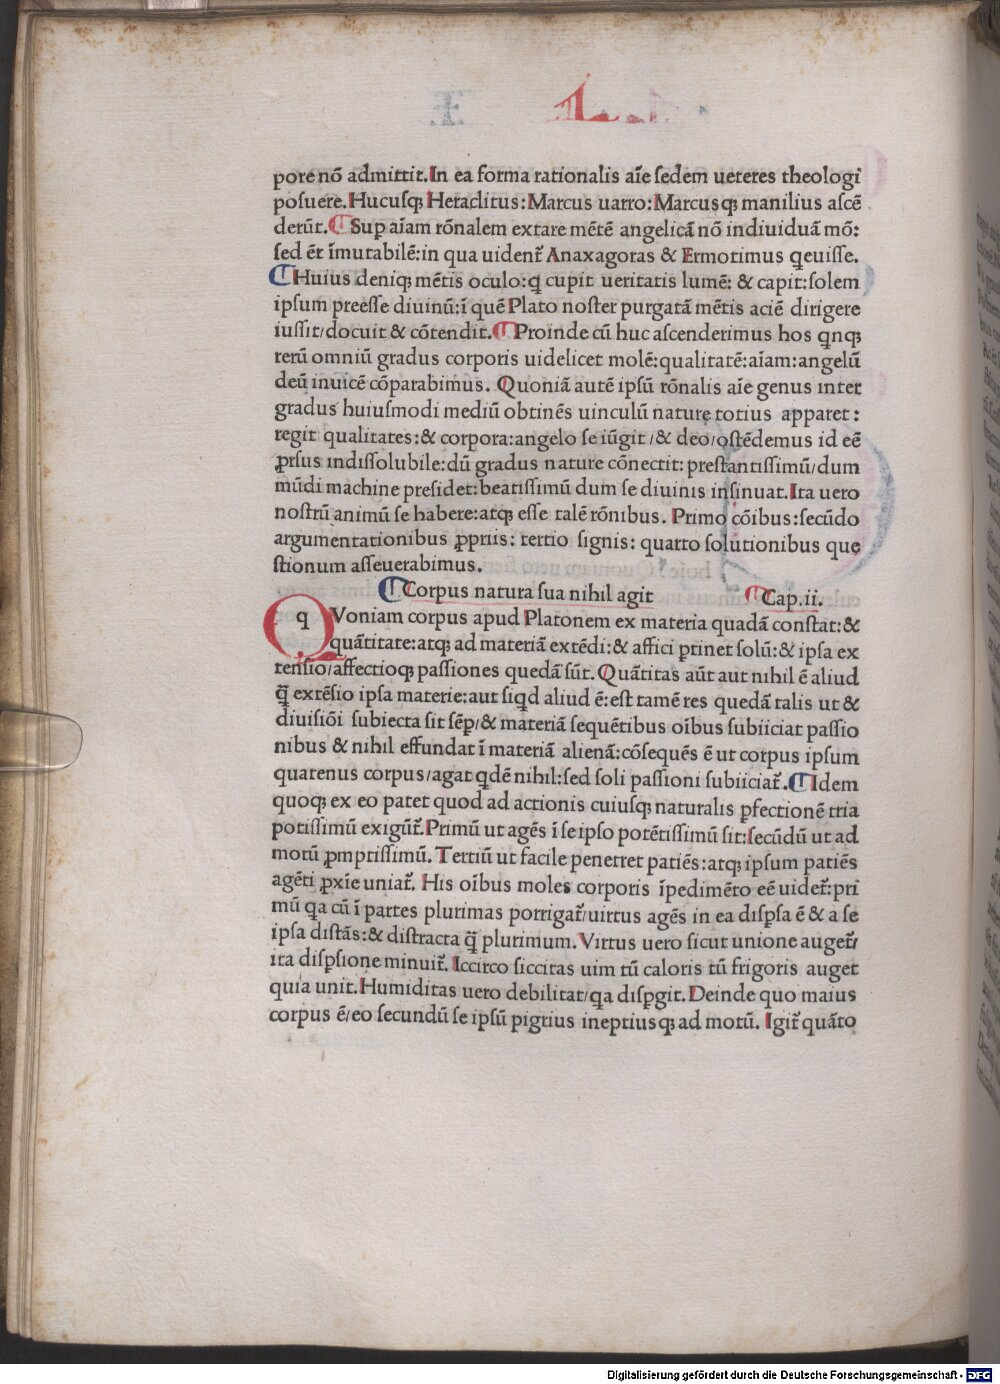 pore nō admittit. In ea forma rationalis aīe sedem ueteres theologi
posuere. Hucusqꝫ Heraclitus: Marcus uarro: Marcusqꝫ manilius ascē
derūt. ¶ Sup aīam rōnalem extare mētē angelicā nō indiuiduā mō:
sed ēt īmutabilē: in qua uident᷑ Anaxagoras & Ermotimus qeuisse.
¶ Huius deniqꝫ mētis oculo: q cupit ueritatis lumē: & capit: solem
ipsum preesse diuinū: ī quē Plato noster purgatā mētis aciē dirigere
iussit/docuit & cōtendit. ¶ Proinde cū huc ascenderimus hos qnqꝫ
rerū omniū gradus corporis uidelicet molē: qualitatē: aīam: angelū
deū inuicē cōparabimus. Quoniā autē ipsū rōnalis aīe genus inter
gradus huiusmodi mediū obtinēs uinculū nature totius apparet:
regit qualitates: & corpora: angelo se iūgit/& deo/ostēdemus id eē
ꝓrsus indissolubile: dū gradus nature cōnectit: prestantissimū/dum
mūdi machine presidet: beatissimū dum se diuinis insinuat. Ita uero
nostrū animū se habere: atqꝫ esse talē rōnibus. Primo cōibus: secūdo
argumentationibus ꝓpriis: tertio signis: quarto solutionibus que
stionum asseuerabimus.
¶ Corpus natura sua nihil agit ¶ Cap. ii.
q Voniam corpus apud Platonem ex materia quadā constat: &
quātitate: atqꝫ ad materiā extēdi: & affici ꝑtinet solū: & ipsa ex
tensio/affectioqꝫ passiones quedā sūt. Quātitas aūt aut nihil ē aliud
q̄ extēsio ipsa materie: aut siqd aliud ē: est tamē res quedā talis ut &
diuisiōi subiecta sit sēꝑ/& materiā sequētibus oībus subiiciat passio
nibus & nihil effundat ī materiā alienā: cōsequēs ē ut corpus ipsum
quatenus corpus/agat qdē nihil: sed soli passioni subiiciat᷑. ¶ Idem
quoqꝫ ex eo patet quod ad actionis cuiusqꝫ naturalis ꝑfectionē tria
potissimū exigūt᷑. Primū ut agēs ī se ipso potētissimū sit: secūdū ut ad
motū ꝓmptissimū. Tertiū ut facile penetret patiēs: atqꝫ ipsum patiēs
agēti ꝓxīe uniat᷑. His oībus moles corporis īpedimēto eē uidet᷑: pri
mū qa cū ī partes plurimas porrigat᷑/uirtus agēs in ea disꝑsa ē & a se
ipsa distās: & distracta q̄ plurimum. Virtus uero sicut unione auget᷑/
ita disꝑsione minuit᷑. Iccirco siccitas uim tū caloris tū frigoris auget
quia unit. Humiditas uero debilitat/qa disꝑgit. Deinde quo maius
corpus ē/eo secundū se ipsū pigrius ineptiusqꝫ ad motū. Igit᷑ quāto
Digitalisierung gefördert durch die Deutsche Forschungsgemeinschaft - DFG